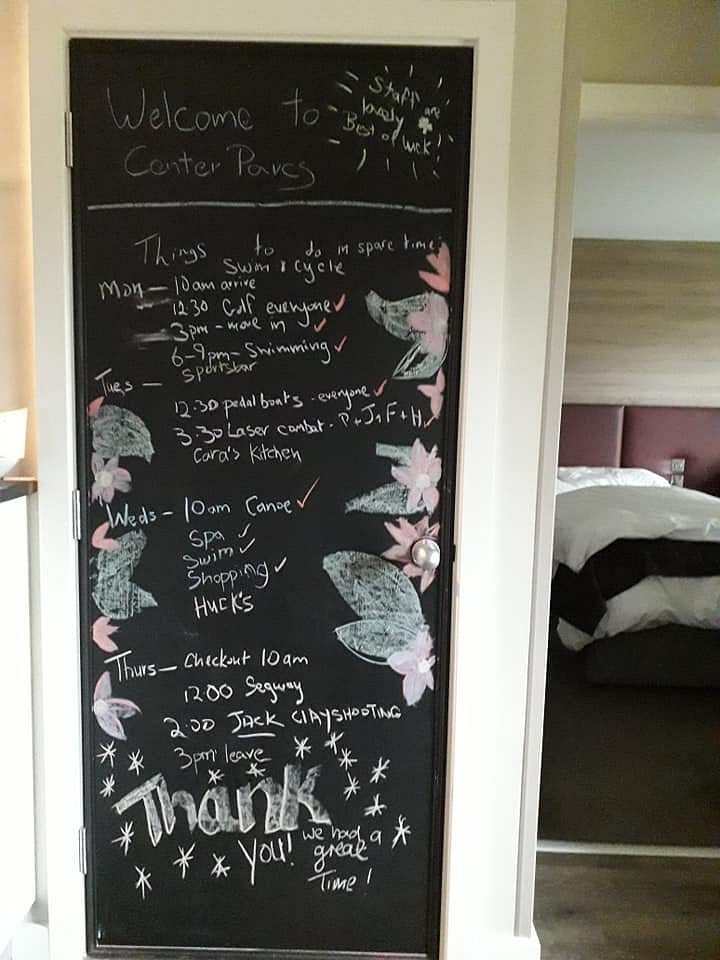 Welcome to
Center Parcs
Staff are
lovely
Best of luck!
Things to do in spare time:
Swim & cycle
Mon - 10am arrive
12.30 Golf everyone ✓
3pm - move in ✓
6-9pm - Swimming ✓
Sportsbar
Tues -
12.30 pedal boats - everyone ✓
3.30 Laser combat - P + J, F + H ✓
Cara's Kitchen
Weds - 10am Canoe ✓
Spa ✓
Swim ✓
Shopping ✓
HUCK'S
Thurs - Checkout 10am
12.00 Segway
2.00 JACK CLAYSHOOTING
3pm leave
Thank
you! we had a
great
Time!